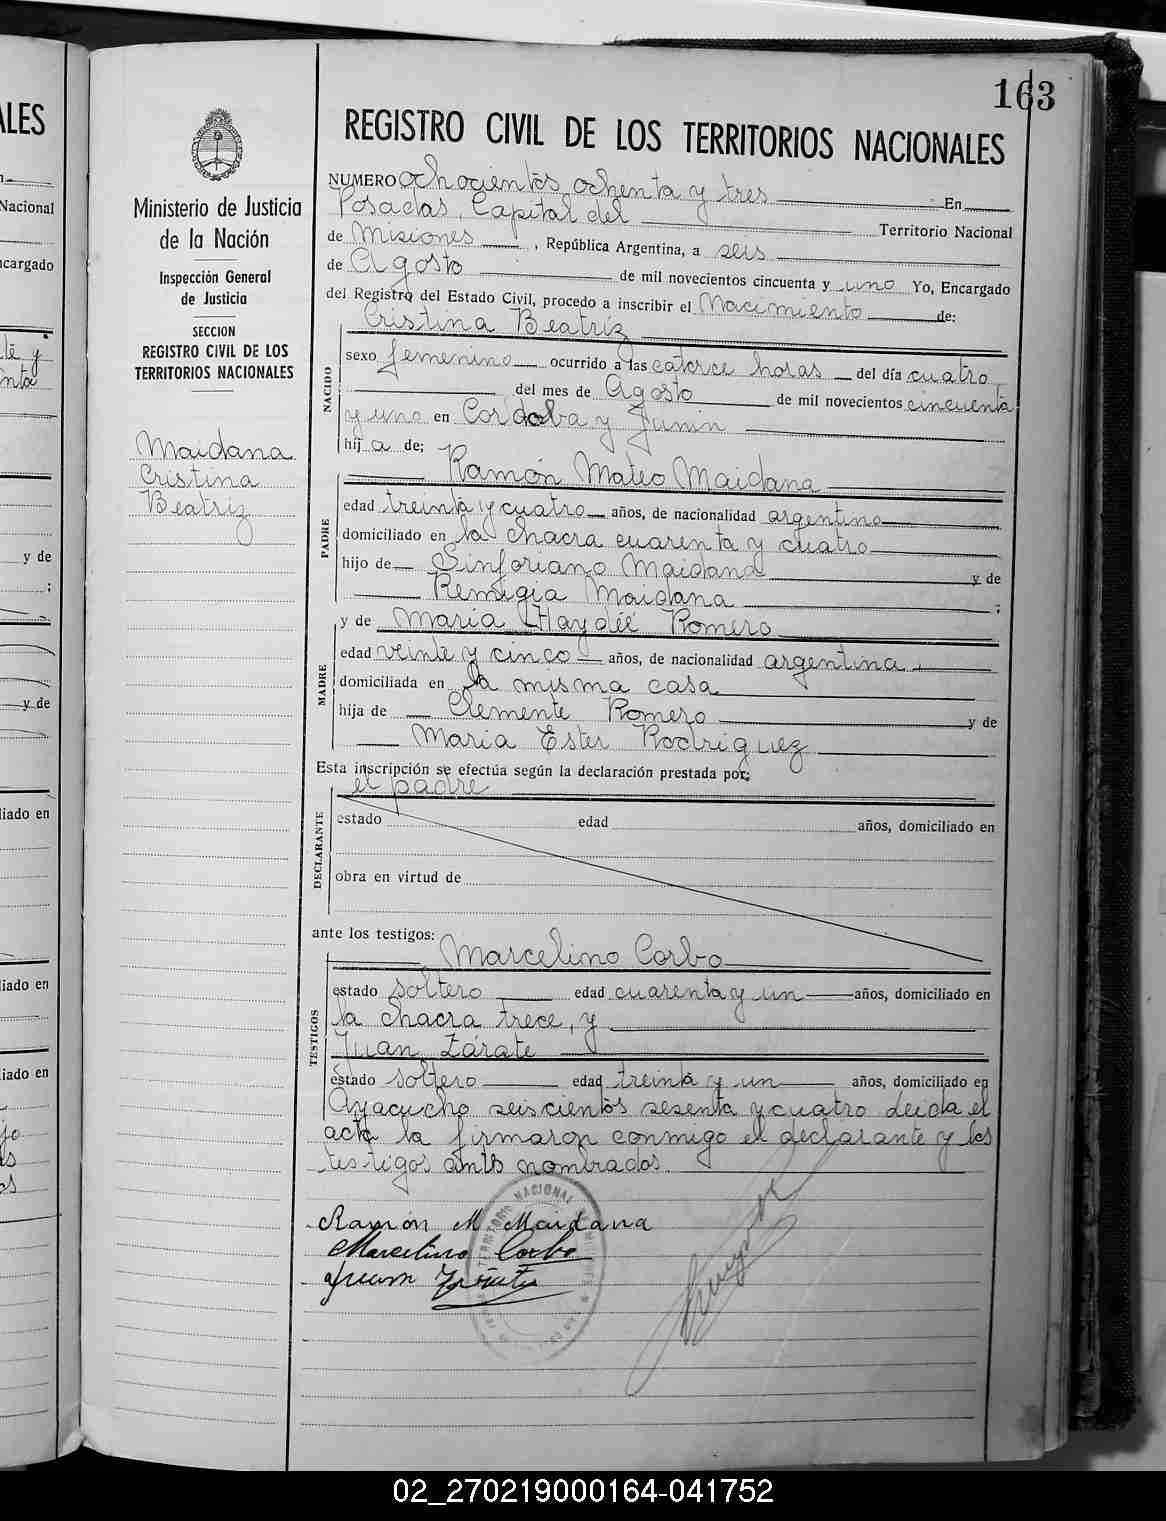 163
REGISTRO CIVIL DE LOS TERRITORIOS NACIONALES
Ministerio de Justicia
de la Nación
Inspección General
de Justicia
SECCION
REGISTRO CIVIL DE LOS
TERRITORIOS NACIONALES
Maidana
Cristina
Beatriz
NUMERO ochocientos ochenta y tres En
Posadas, Capital del Territorio Nacional
de Misiones, República Argentina, a seis
de Agosto de mil novecientos cincuenta y uno Yo, Encargado
del Registro del Estado Civil, procedo a inscribir el Nacimiento de:
Cristina Beatriz
NACIDO
sexo femenino ocurrido a las catorce horas del día cuatro,
del mes de Agosto de mil novecientos cincuenta
y uno en Córdoba y Junin
hij a de;
Ramón Mateo Maidana
PADRE
edad treinta y cuatro años, de nacionalidad argentino
domiciliado en la chacra cuarenta y cuatro
hijo de Sinforiano Maidana y de
Remigia Maidana ;
y de Maria Haydée Romero
MADRE
edad veinte y cinco años, de nacionalidad argentina,
domiciliada en la misma casa
hija de Clemente Romero y de
Maria Ester Rodriguez
Esta inscripción se efectúa según la declaración prestada por;
el padre
DECLARANTE
estado edad años, domiciliado en
obra en virtud de
ante los testigos:
Marcelino Corbo
TESTIGOS
estado soltero edad cuarenta y un años, domiciliado en
la chacra trece, y
Juan Zárate
estado soltero edad treinta y un años, domiciliado en
Ayacucho seiscientos sesenta y cuatro Leida el
acta la firmaron conmigo el declarante y los
testigos antes nombrados.
Ramón M Maidana
Marcelino Corbo
Juan Zárate
TERRITORIO NACIONAL
ALES
Nacional
ncargado
y de
;
y de
liado en
liado en
liado en
02_270219000164-041752